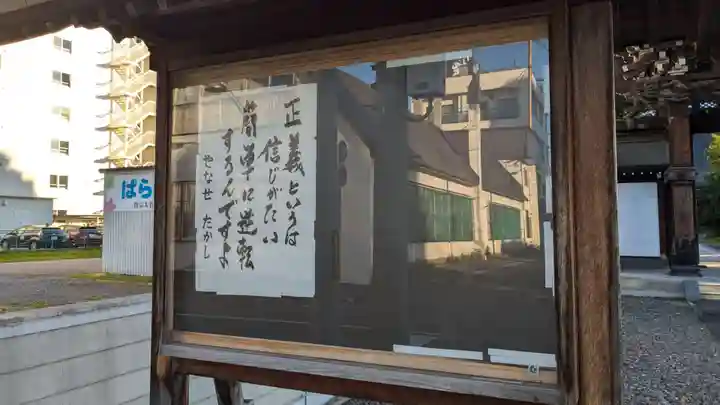 正義というのは
信じがたい
簡単に逆転
するんですよ
やなせ たかし
ばら